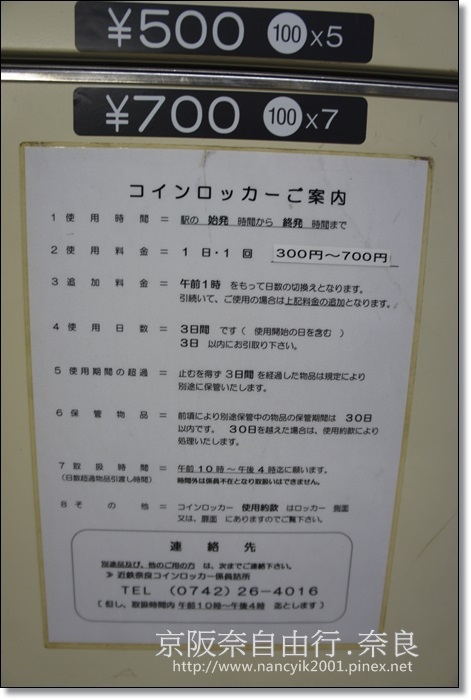 ¥500 100 x5
¥700 100 x7
コインロッカーご案内
1 使用時間 = 駅の 始発 時間から 終発 時間まで
2 使用料金 = 1日・1回 300円～700円
3 追加料金 = 午前1時 をもって日数の切換えとなります。
引続いて、ご使用の場合は上記料金の追加となります。
4 使用日数 = 3日間 です( 使用開始の日を含む )
3日 以内にお引取り下さい。
5 使用期間の超過 = 止むを得ず 3日間 を経過した物品は規定により
別途に保管いたします。
6 保管物品 = 前項により別途保管中の物品の保管期間は 30日
以内です。 30日を越えた場合は、使用約款により
処理いたします。
7 取扱時間 = 午前10時～午後4時迄に願います。
(日数超過物品引渡し時間) 時間外は係員不在となり取扱いはできません。
8 その他 = コインロッカー 使用約款 はロッカー 側面
又は、扉面 にありますのでご覧下さい。
連絡先
別途品及び、他のご用の方 は、次までご連絡下さい。
≫ 近鉄奈良コインロッカー係員詰所
TEL (0742) 26-4016
[ 但し、取扱時間内 午前10時～午後4時 迄とします ]
京阪奈自由行.奈良
http://www.nancyik2001.pinex.net